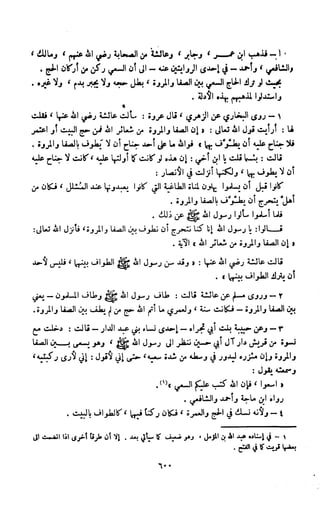 ١ - فذهب ابن عمر ، وجابر ، وعائشة من الصحابة رضي الله عنهم ، ومالك ،
والشافعي ، وأحمد - في إحدى الروايتين عنه - إلى أن السعي ركن من أركان الحج .
بحيث لو ترك الحاج السعي بين الصفا والمروة ، بطل حجه ولا يجبر بدم ، ولا غيره .
واستدلوا لمذهبهم بهذه الأدلة .
١ - روى البخاري عن الزهري ، قال عروة : سألت عائشة رضي الله عنها ، فقلت
لها : أرأيت قول الله تعالى : « إن الصفا والمروة من شعائر الله فمن حج البيت أو اعتمر
فلا جناح عليه أن يطوف بهما » فوالله ما على أحد جناح أن لا يطوف بالصفا والمروة .
قالت : بئسما قلت يا ابن أخي : إن هذه لو كانت كما أولتها عليه ، كانت لا جناح عليه
أن لا يطوف بهما ، ولكنها أنزلت في الأنصار :
كانوا قبل أن يسلموا يهلون لمناة الطاغية التي كانوا يعبدونها عند المشلل ، فكان من
أهل يتحرج أن يطوف بالصفا والمروة .
فلما أسلموا سألوا رسول الله ﷺ عن ذلك .
قالوا : يا رسول الله إنا كنا نتحرج أن نطوف بين الصفا والمروة، فأنزل الله تعالى:
« إن الصفا والمروة من شعائر الله » الآية .
قالت عائشة رضي الله عنها : « وقد سن رسول الله ﷺ الطواف بينهما ، فليس لأحد
أن يترك الطواف بينهما » .
٢ - وروى مسلم عن عائشة قالت : طاف رسول الله ﷺ وطاف المسلمون - يعني
بين الصفا والمروة - فكانت سنة ، ولعمري ما أتم الله حج من لم يطف بين الصفا والمروة.
٣ - وعن حبيبة بنت أبي تجراه - إحدى نساء بني عبد الدار - قالت : دخلت مع
نسوة من قريش دار آل أبي حسين ننظر إلى رسول الله ﷺ ، وهو يسعى بين الصفا
والمروة وإن مئزره ليدور في وسطه من شدة سعيه ، حتى إني لأقول : إني لأرى ركبتيه ،
وسمعته يقول :
« اسعوا ، فإن الله كتب عليكم السعي »(١) .
رواه ابن ماجة وأحمد والشافعي .
٤ - ولأنه نسك في الحج والعمرة ، فكان ركناً فيهما ، كالطواف بالبيت .
١ - في إسناده عبد الله بن المؤمل ، وهو ضعيف كما سيأتي بعد . إلا أن طرقاً أخرى إذا انضمت إلى
بعضها قويت كما في الفتح .
٦٠٠